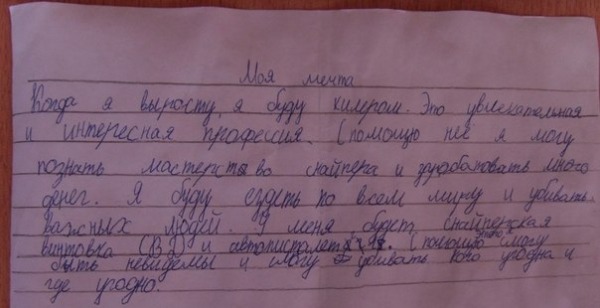 Моя мечта
Когда я выросту, я буду килером. Это увлекательная
и интересная професия. С помощю неё я могу
познать мастерство снайпера и зарабатовать много
денег. Я буду ездеть по всем миру и убивать
важных людей. У меня будет снайперская
винтовка (ВД) и автопистолет. С помощю этого смогу
быть невидемы и смогу убивать кого угодна и
где угодно.